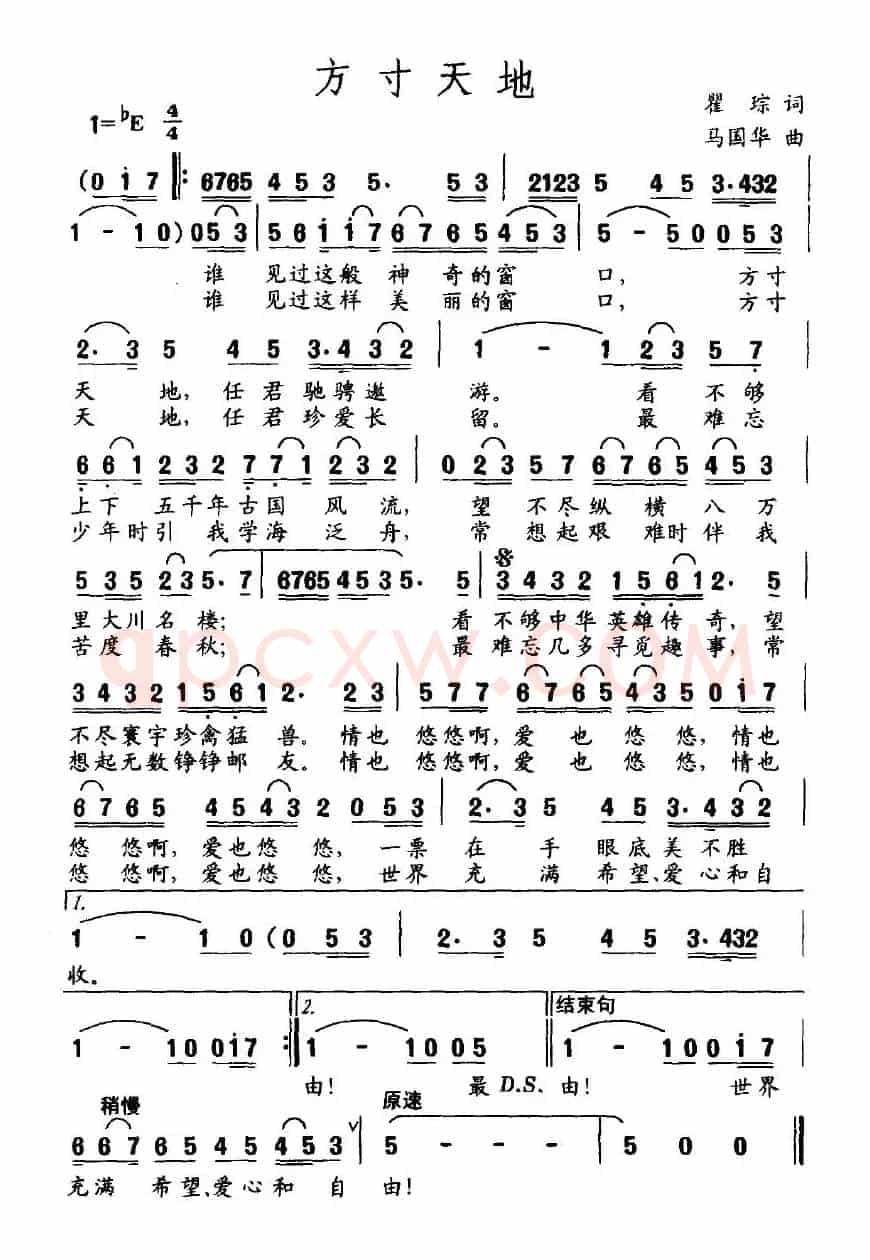 方寸天地
1=♭E 4/4
瞿琮 词
马国华 曲
(0 i 7 ‖: 6765 4 5 3 5· 5 3 | 2123 5 4 5 3·432
1 - 1 0) 0 5 3 | 5 6 i i 7 6 7 6 5 4 5 3 | 5 - 5 0 0 5 3
谁 见过这般 神 奇的窗 口, 方寸
谁 见过这样 美 丽的窗 口, 方寸
2· 3 5 4 5 3·4 3 2 | 1 - 1 2 3 5 7
天 地, 任君驰骋遨 游。 看 不够
天 地, 任君珍爱长 留。 最 难忘
6 6 1 2 3 2 7 7 1 2 3 2 | 0 2 3 5 7 6 7 6 5 4 5 3
上下 五千年古国 风流, 望 不尽纵 横 八万
少年时引 我学海 泛舟, 常 想起艰 难时伴我
5 3 5 2 3 5· 7 | 6765 4 5 3 5· 5 | 3 4 3 2 1 5 6 1 2· 5
里大川名楼; 看不够中华英雄传奇,望
苦度 春秋; 最难忘几多寻觅趣事,常
qpcxw.com
3 4 3 2 1 5 6 1 2· 2 3 | 5 7 7 6 7 6 5 4 3 5 0 i 7
不尽寰宇珍禽猛 兽。 情也 悠悠啊,爱 也 悠 悠,情也
想起无数铮铮邮 友。 情也 悠悠啊,爱 也 悠 悠,情也
6 7 6 5 4 5 4 3 2 0 5 3 | 2· 3 5 4 5 3·4 3 2
悠 悠啊, 爱也悠 悠, 一票 在 手 眼底美不胜
悠 悠啊, 爱也悠 悠, 世界 充 满 希望、爱心和自
1.
1 - 1 0 (0 5 3 | 2· 3 5 4 5 3·432
收。
2. 结束句
1 - 1 0 0 i 7 :‖ 1 - 1 0 0 5 ‖ 1 - 1 0 0 i 7
由! 最 D.S、由! 世界
稍慢 原速
6 6 7 6 5 4 5 4 5 3 ∨ | 5 - - - | 5 0 0 ‖
充满 希望、爱心和 自 由!